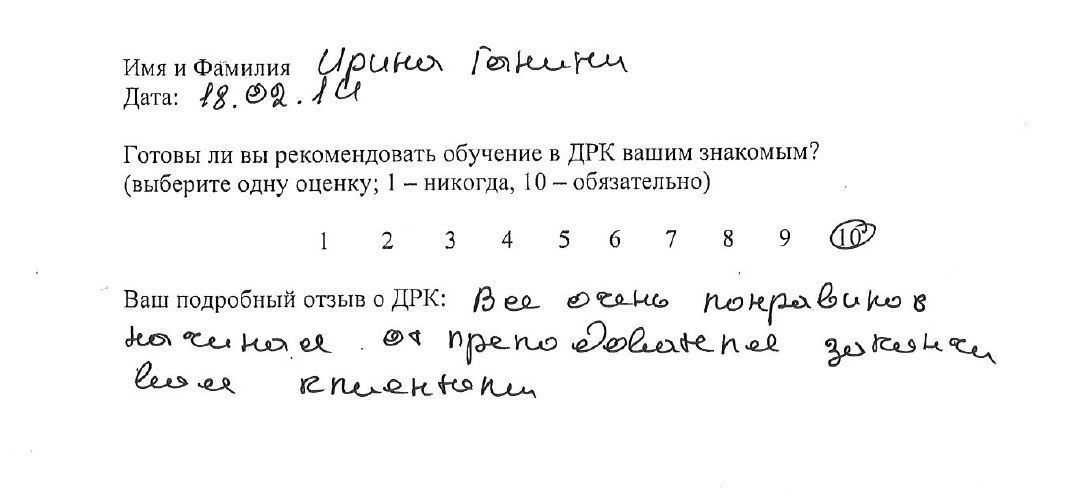 Имя и Фамилия Ирина Ганини
Дата: 18.02.14
Готовы ли вы рекомендовать обучение в ДРК вашим знакомым?
(выберите одну оценку; 1 – никогда, 10 – обязательно)
1 2 3 4 5 6 7 8 9 10
Ваш подробный отзыв о ДРК: Все очень понравилов
начиная от преподователя заканчи
вая клиентами